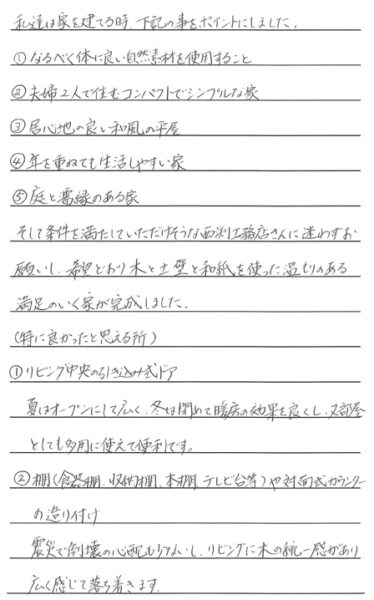 私達は家を建てる時、下記の事をポイントにしました。
①なるべく体に良い自然素材を使用すること
②夫婦2人で住むコンパクトでシンプルな家
③居心地の良い和風の平屋
④年を重ねても生活しやすい家
⑤庭と濡縁のある家
そして条件を満たしていただけそうな西渕工務店さんに迷わずお
願いし、希望どおり木と土壁と和紙を使った温もりのある
満足のいく家が完成しました。
(特に良かったと思える所)
①リビング中央の引き込み式ドア
夏はオープンにして広く、冬は閉めて暖房の効果を良くし、又部屋
としても多用に使えて便利です。
②棚(食器棚、収納棚、本棚、テレビ台等)や対面式カウンター
の造り付け
震災で倒壊の心配も少ないし、リビングに木の統一感があり
広く感じて落ち着きます。